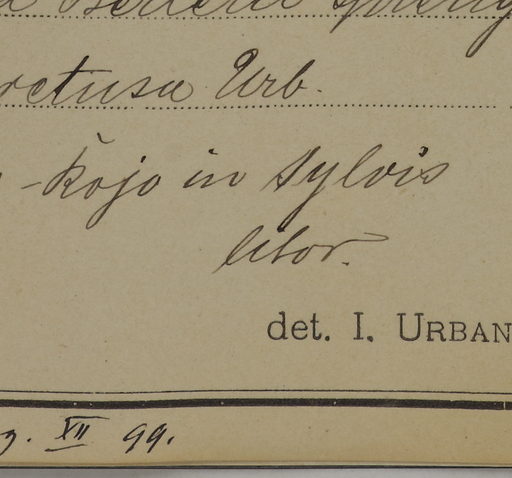 Berterii Spreng
retusa Urb.
-Kojo in sylvis
litor.
det. I. URBAN
XII 99.